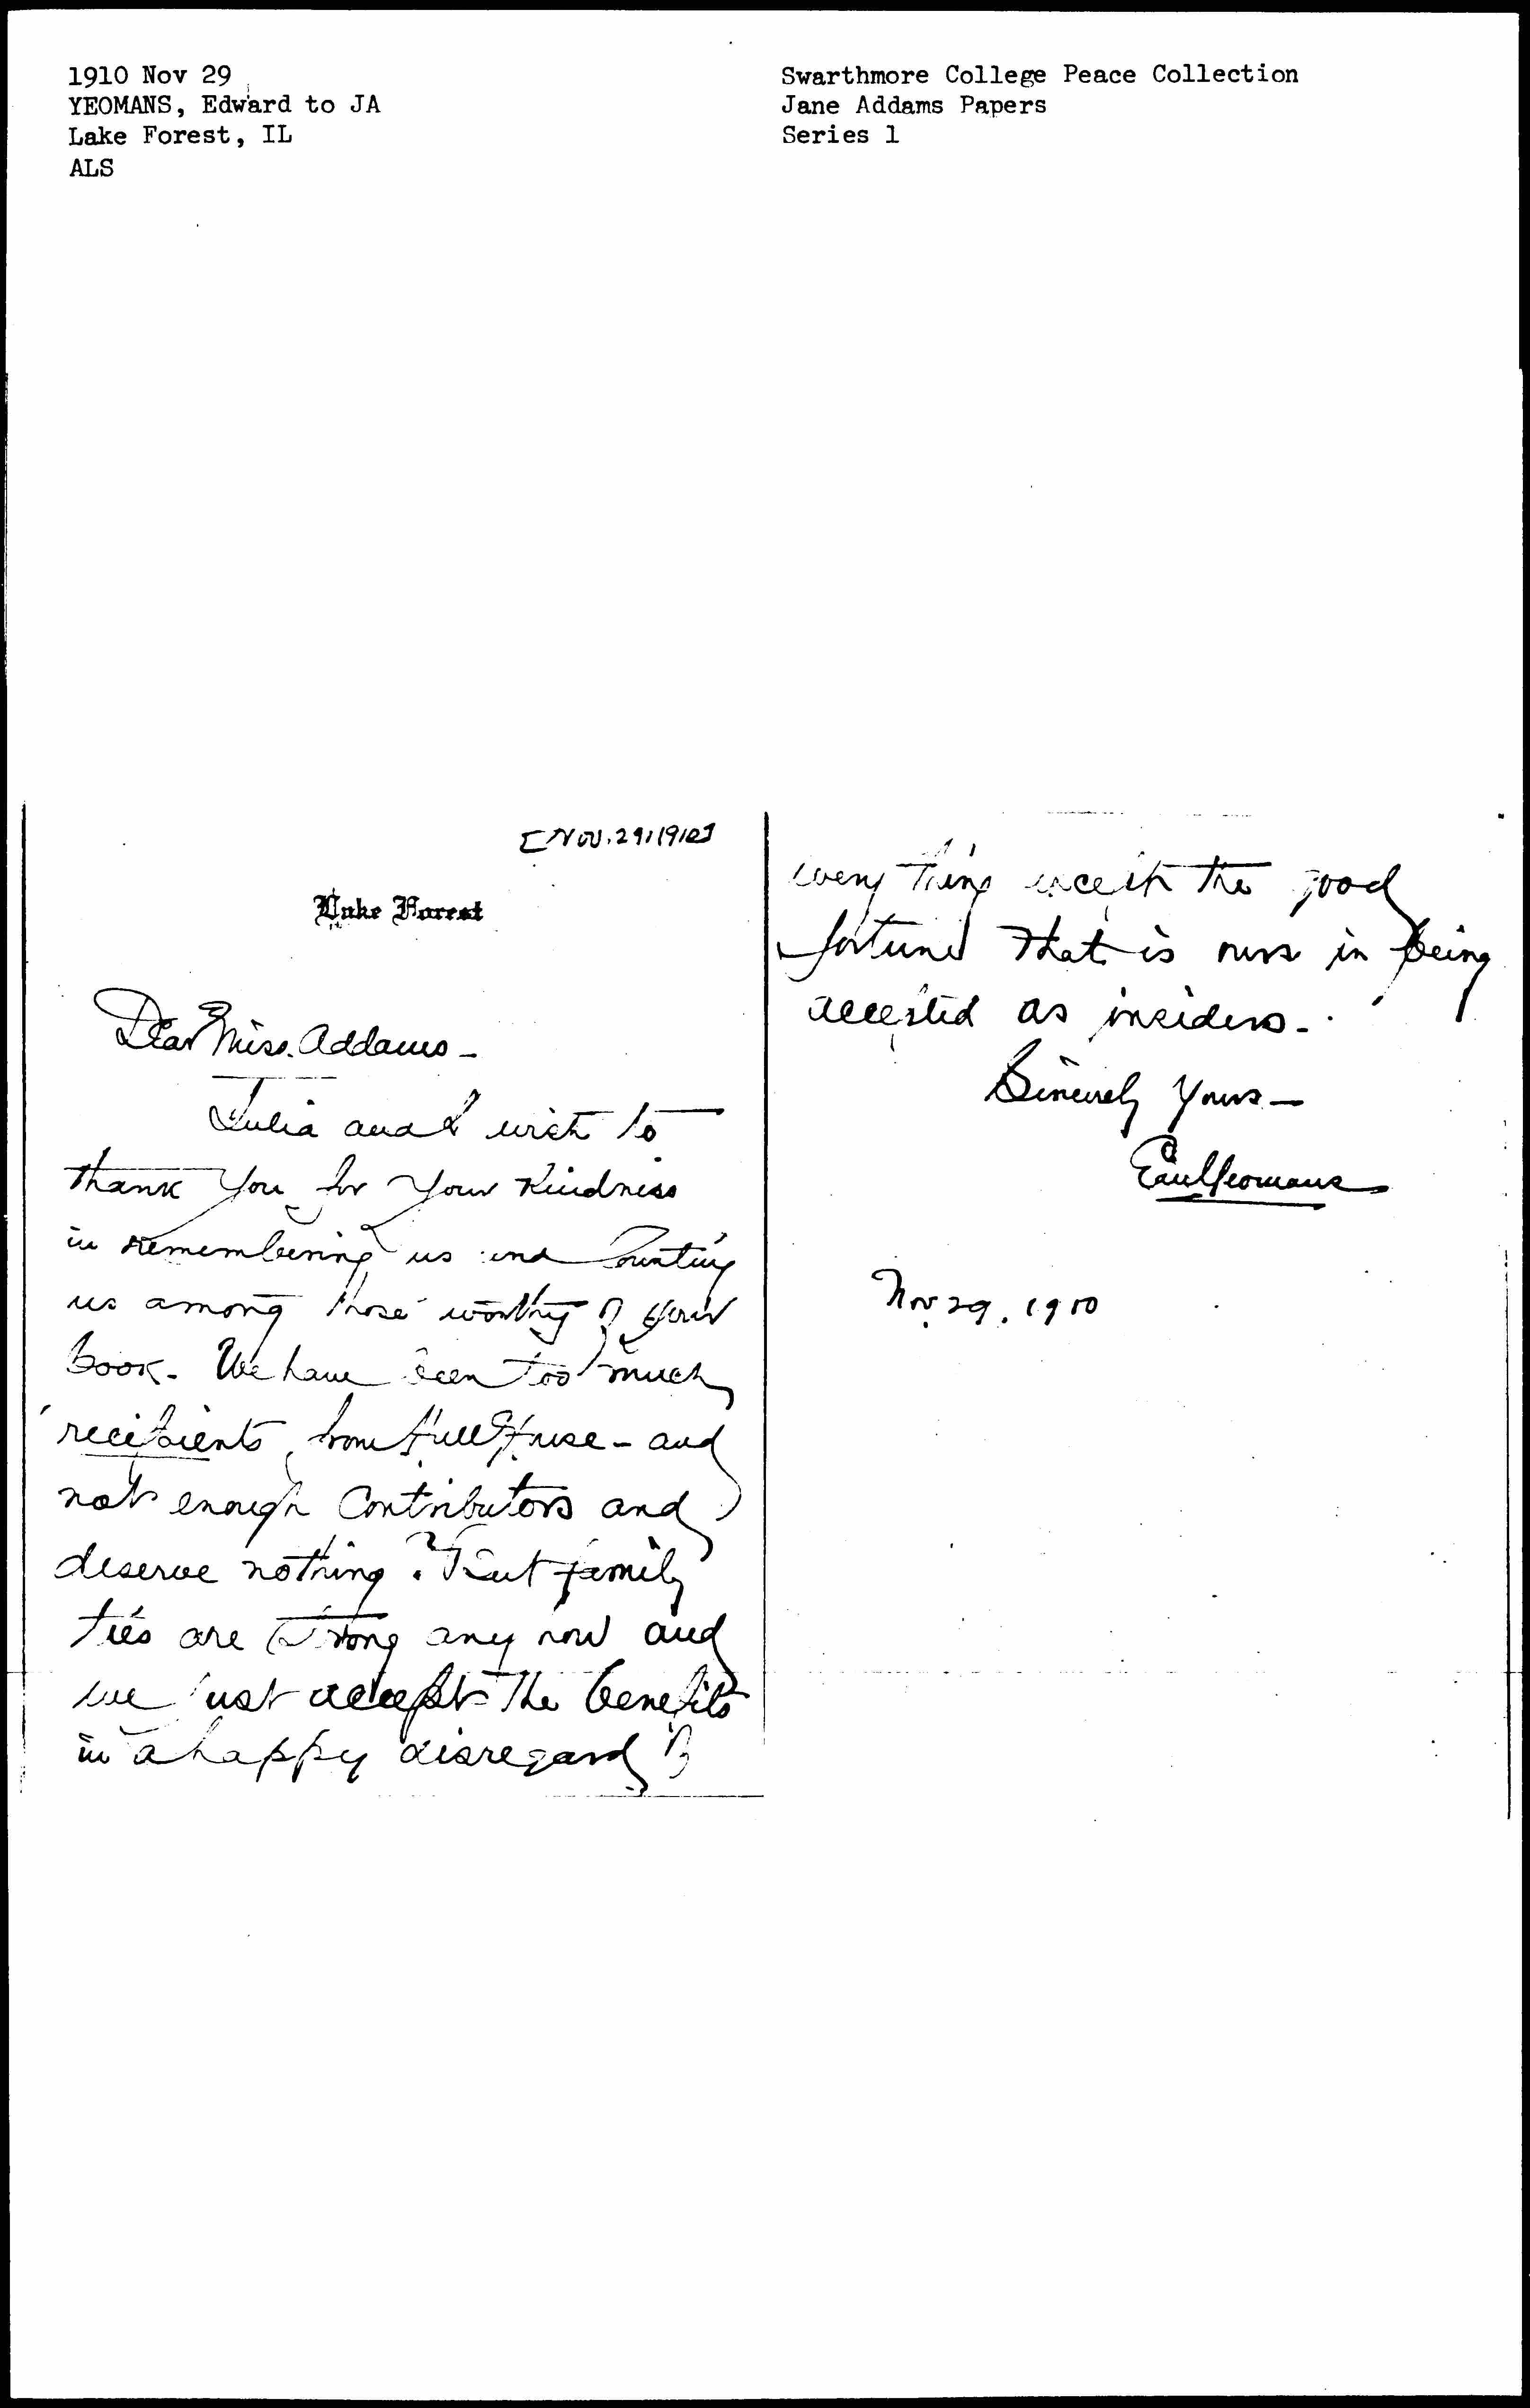 1910 Nov 29
YEOMANS, Edward to JA
Lake Forest, IL
ALS
Swarthmore College Peace Collection
Jane Addams Papers
Series 1
[Nov. 29, 1910]
Lake Forest
Dear Miss. Addams -
Julia and I wish to
thank you for your kindness
in remembering us and counting
us among those worthy of your
book - We have been too much
recipients from Hull House - and
not enough Contributors and
deserve nothing. But family
ties are strong any how and
we just accept the benefits
in a happy disregard of
every thing except the good
fortune that is ours in being
accepted as insiders -
Sincerely Yours -
Yeomans
Nov 29, 1910